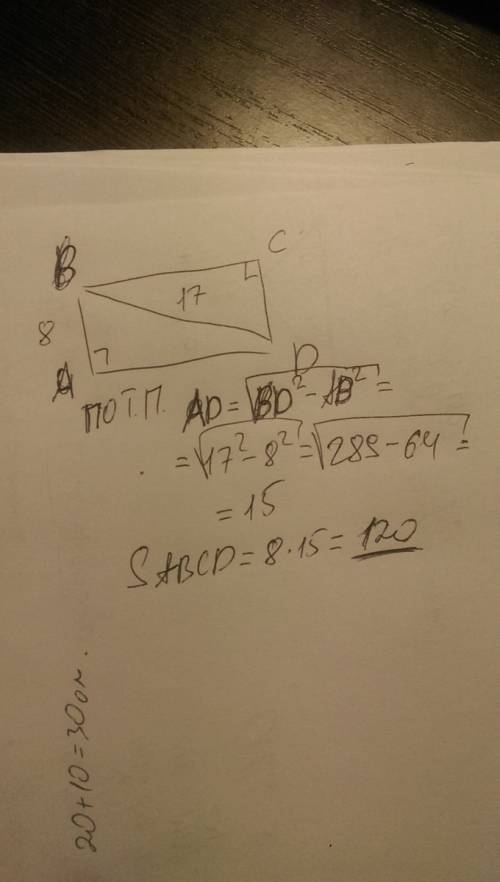 C
B
17
8
A
D
ПО Т.П. AD = √BD² - AB² =
= √17² - 8² = √289 - 64 =
= 15
SABCD = 8 · 15 = 120
20 + 10 = 30